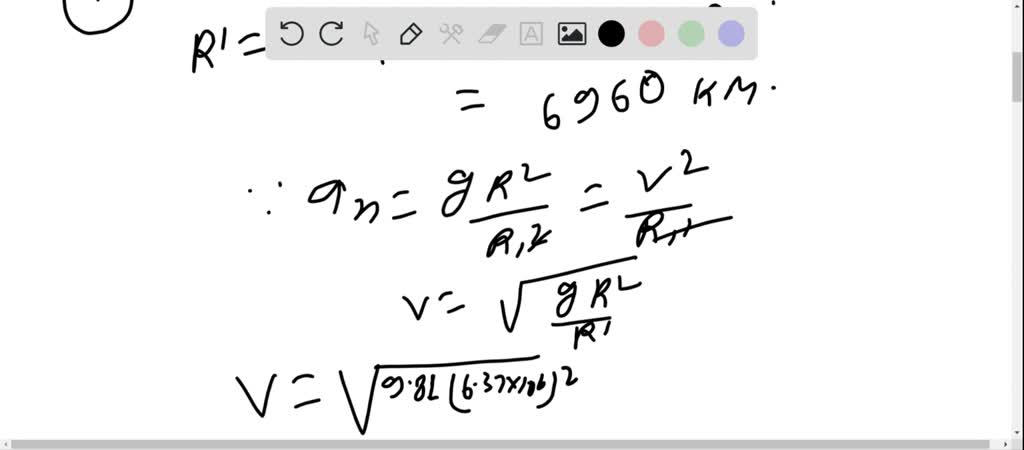 R' =
= 6960 KM.
∵ an = gR² / R'² = v² / R'
v = √(gR² / R')
V = √(9.81 (6.37×10⁶)²